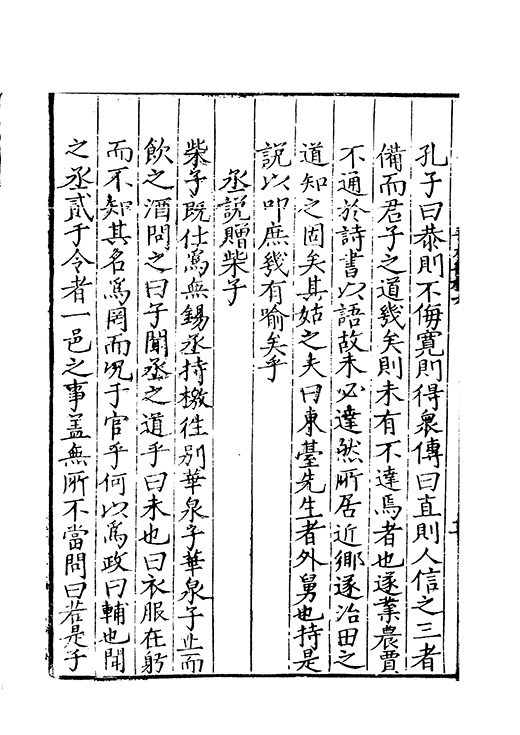 孔子曰恭則不侮寬則得衆傳曰直則人信之三者
備而君子之道幾矣則未有不達焉者也遂業農賈
不通於詩書以語故未必達然所居近鄉遂治田之
道知之固矣其姑之夫曰東臺先生者外舅也持是
説以叩庶幾有喻矣乎
丞説贈柴子
柴子既仕爲無錫丞持檄徃别華泉子華泉子止而
飲之酒問之曰子聞丞之道乎曰未也曰衣服在躬
而不知其名爲罔而况于官乎何以爲政曰輔也聞
之丞貳于令者一邑之事盖無所不當問曰若是乎